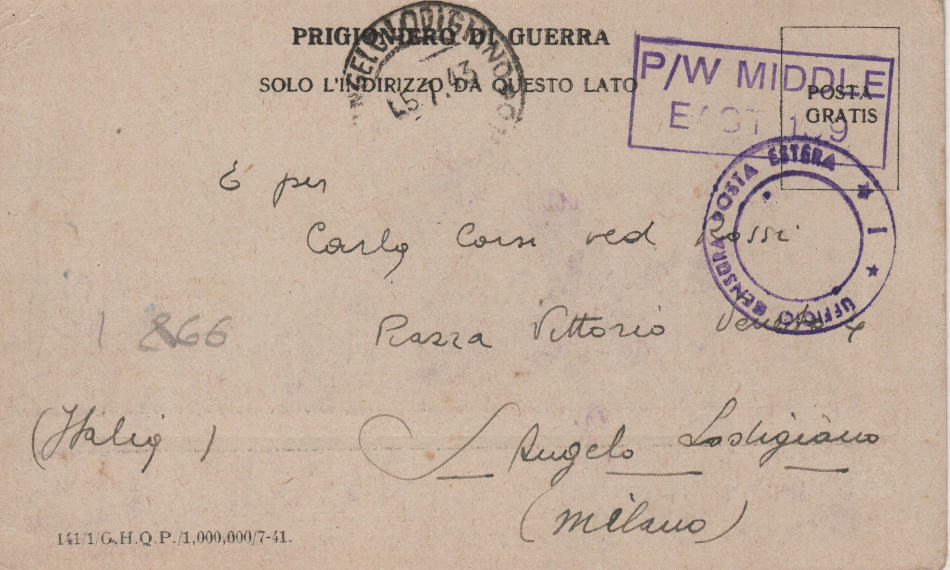 PRIGIONIERO DI GUERRA
SOLO L'INDIRIZZO DA QUESTO LATO
ANGELO LODIGIANO
15.7.43
P/W MIDDLE
EAST
POSTA
GRATIS
UFFICI CENSURA POSTA ESTERA ★ 1 ★
E per
Carlo Corsi ved Rossi
1866
Piazza Vittorio Veneto 4
(Italia)
S. Angelo Lodigiano
(Milano)
141/1/G.H.Q.P./1,000,000/7-41.